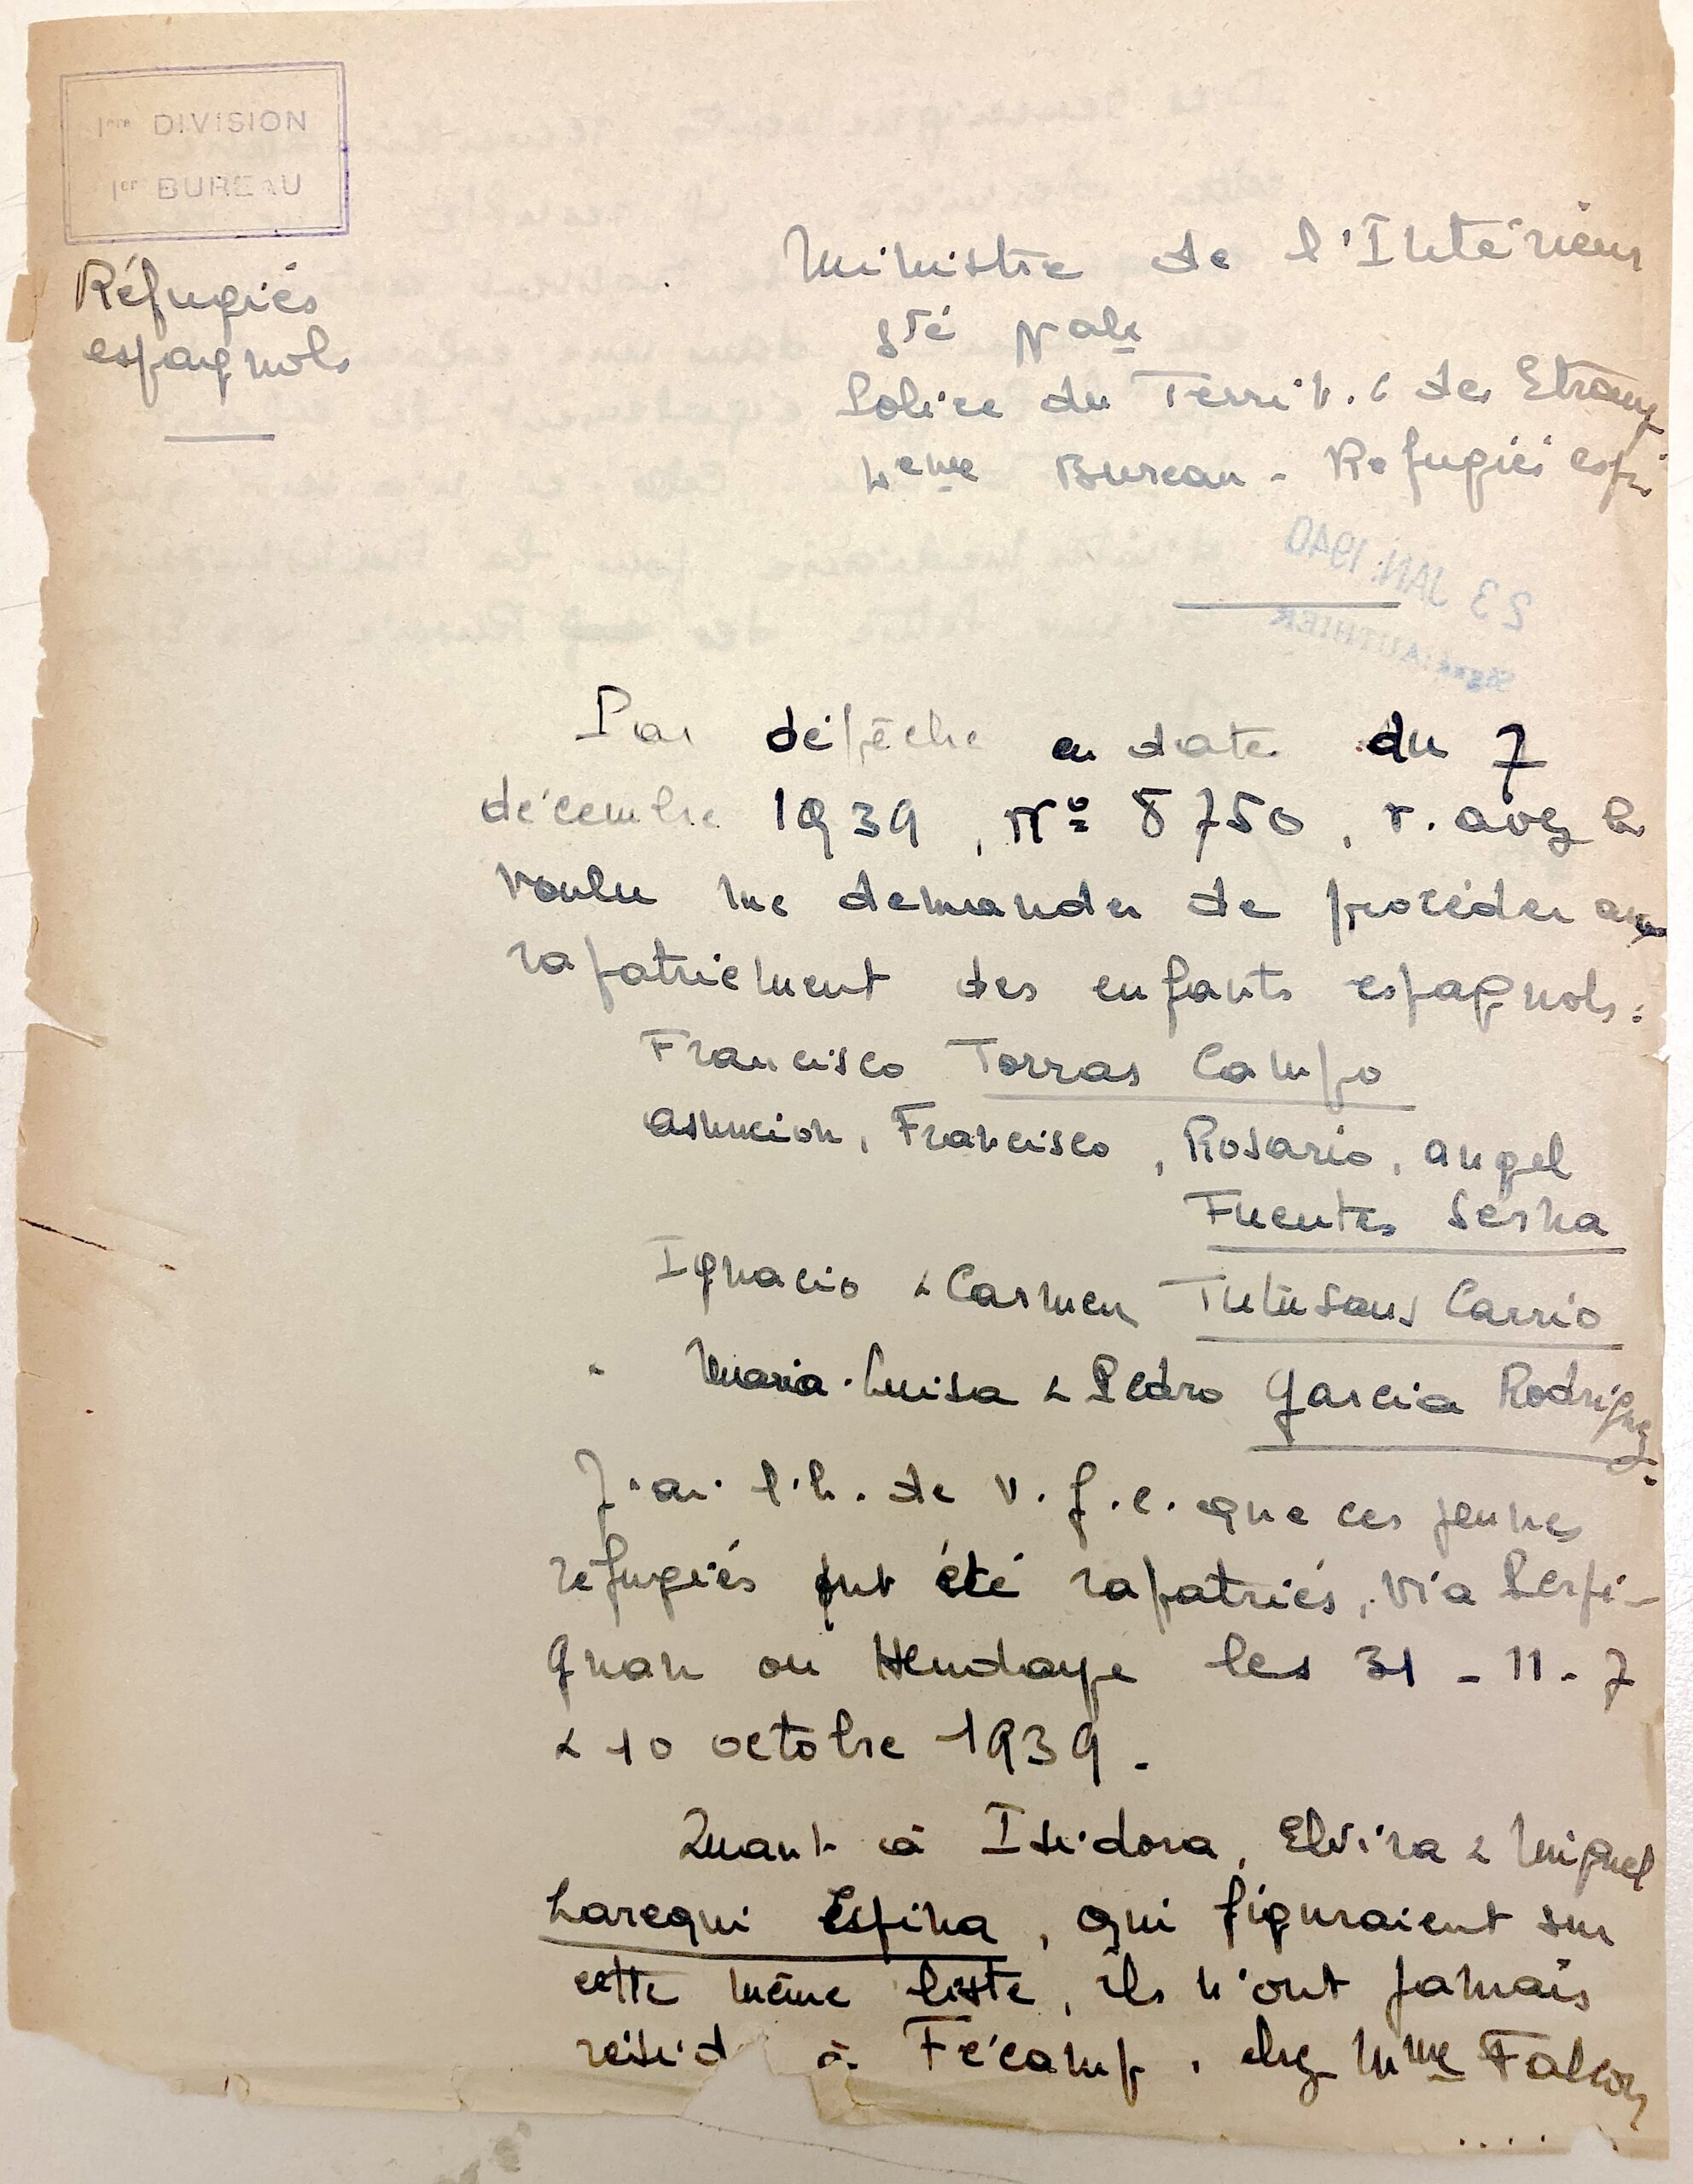 1ère DIVISION
1er BUREAU
Réfugiés
espagnols
Ministre de l'Intérieur
Sté Nale
Police du Territ. & des Etrang
4eme Bureau - Réfugiés esp.
23 JAN. 1940
Signé: AUTHIER
Par dépêche en date du 7
décembre 1939, Nº 8750, v. avez b.
voulu me demander de procéder au
rapatriement des enfants espagnols :
Francisco Torras Campo
Asuncion, Francisco, Rosario, Angel
Fuentes Serna
Ignacio & Carmen Tutusaus Carrio
Maria-Luisa & Pedro Garcia Rodriguez.
J'ai l'h. de v. f. c. que ces jeunes
réfugiés ont été rapatriés, via Perpi-
gnan ou Hendaye les 31 - 11 - 7
& 10 octobre 1939.
Quant à Isidora, Elvira & Miguel
Larequi Espina, qui figuraient sur
cette même liste, ils n'ont jamais
résid à Fécamp, chez Mme
....